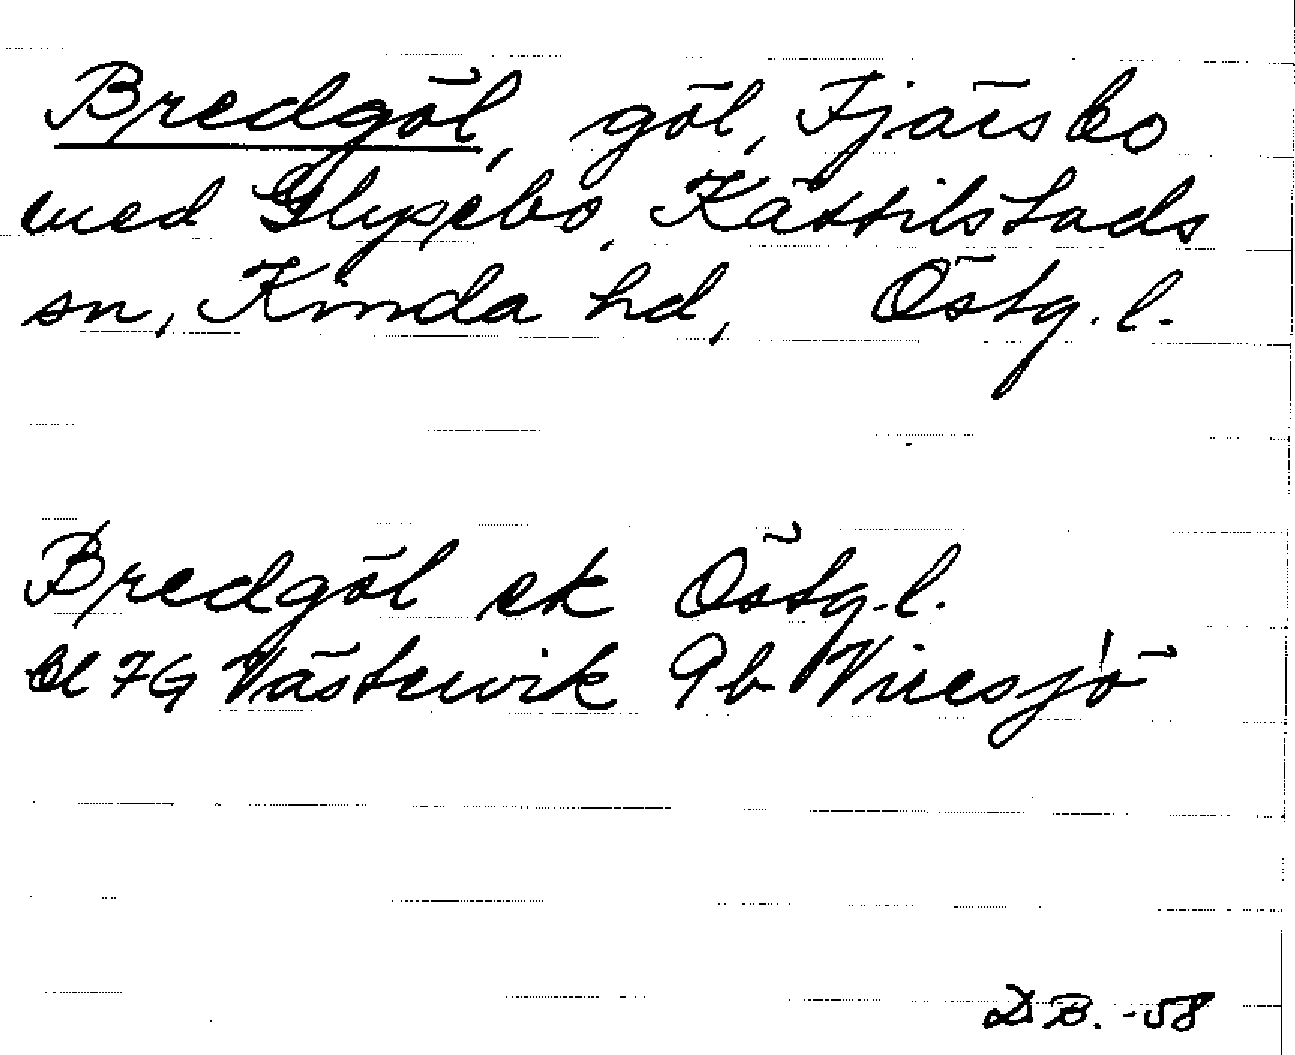 Bredgöl, göl, Fjärsbo
med Glypebo, Kättilstads
sn, Kinda hd, Östg. l.
Bredgöl ek Östg. l.
Bl 7G Västervik 9b Viresjö
D B. -58